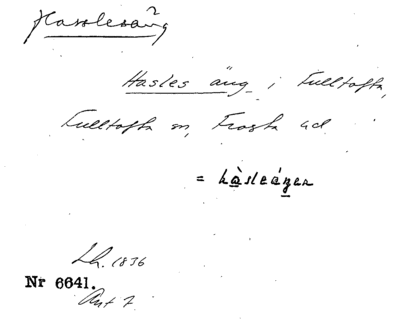 Hasslesäng
Hasles äng i Fulltofta,
Fulltofta sn, Frosta hd
= hàsleáŋen
Lh. 1836
Nr 6641.
Akt 7.